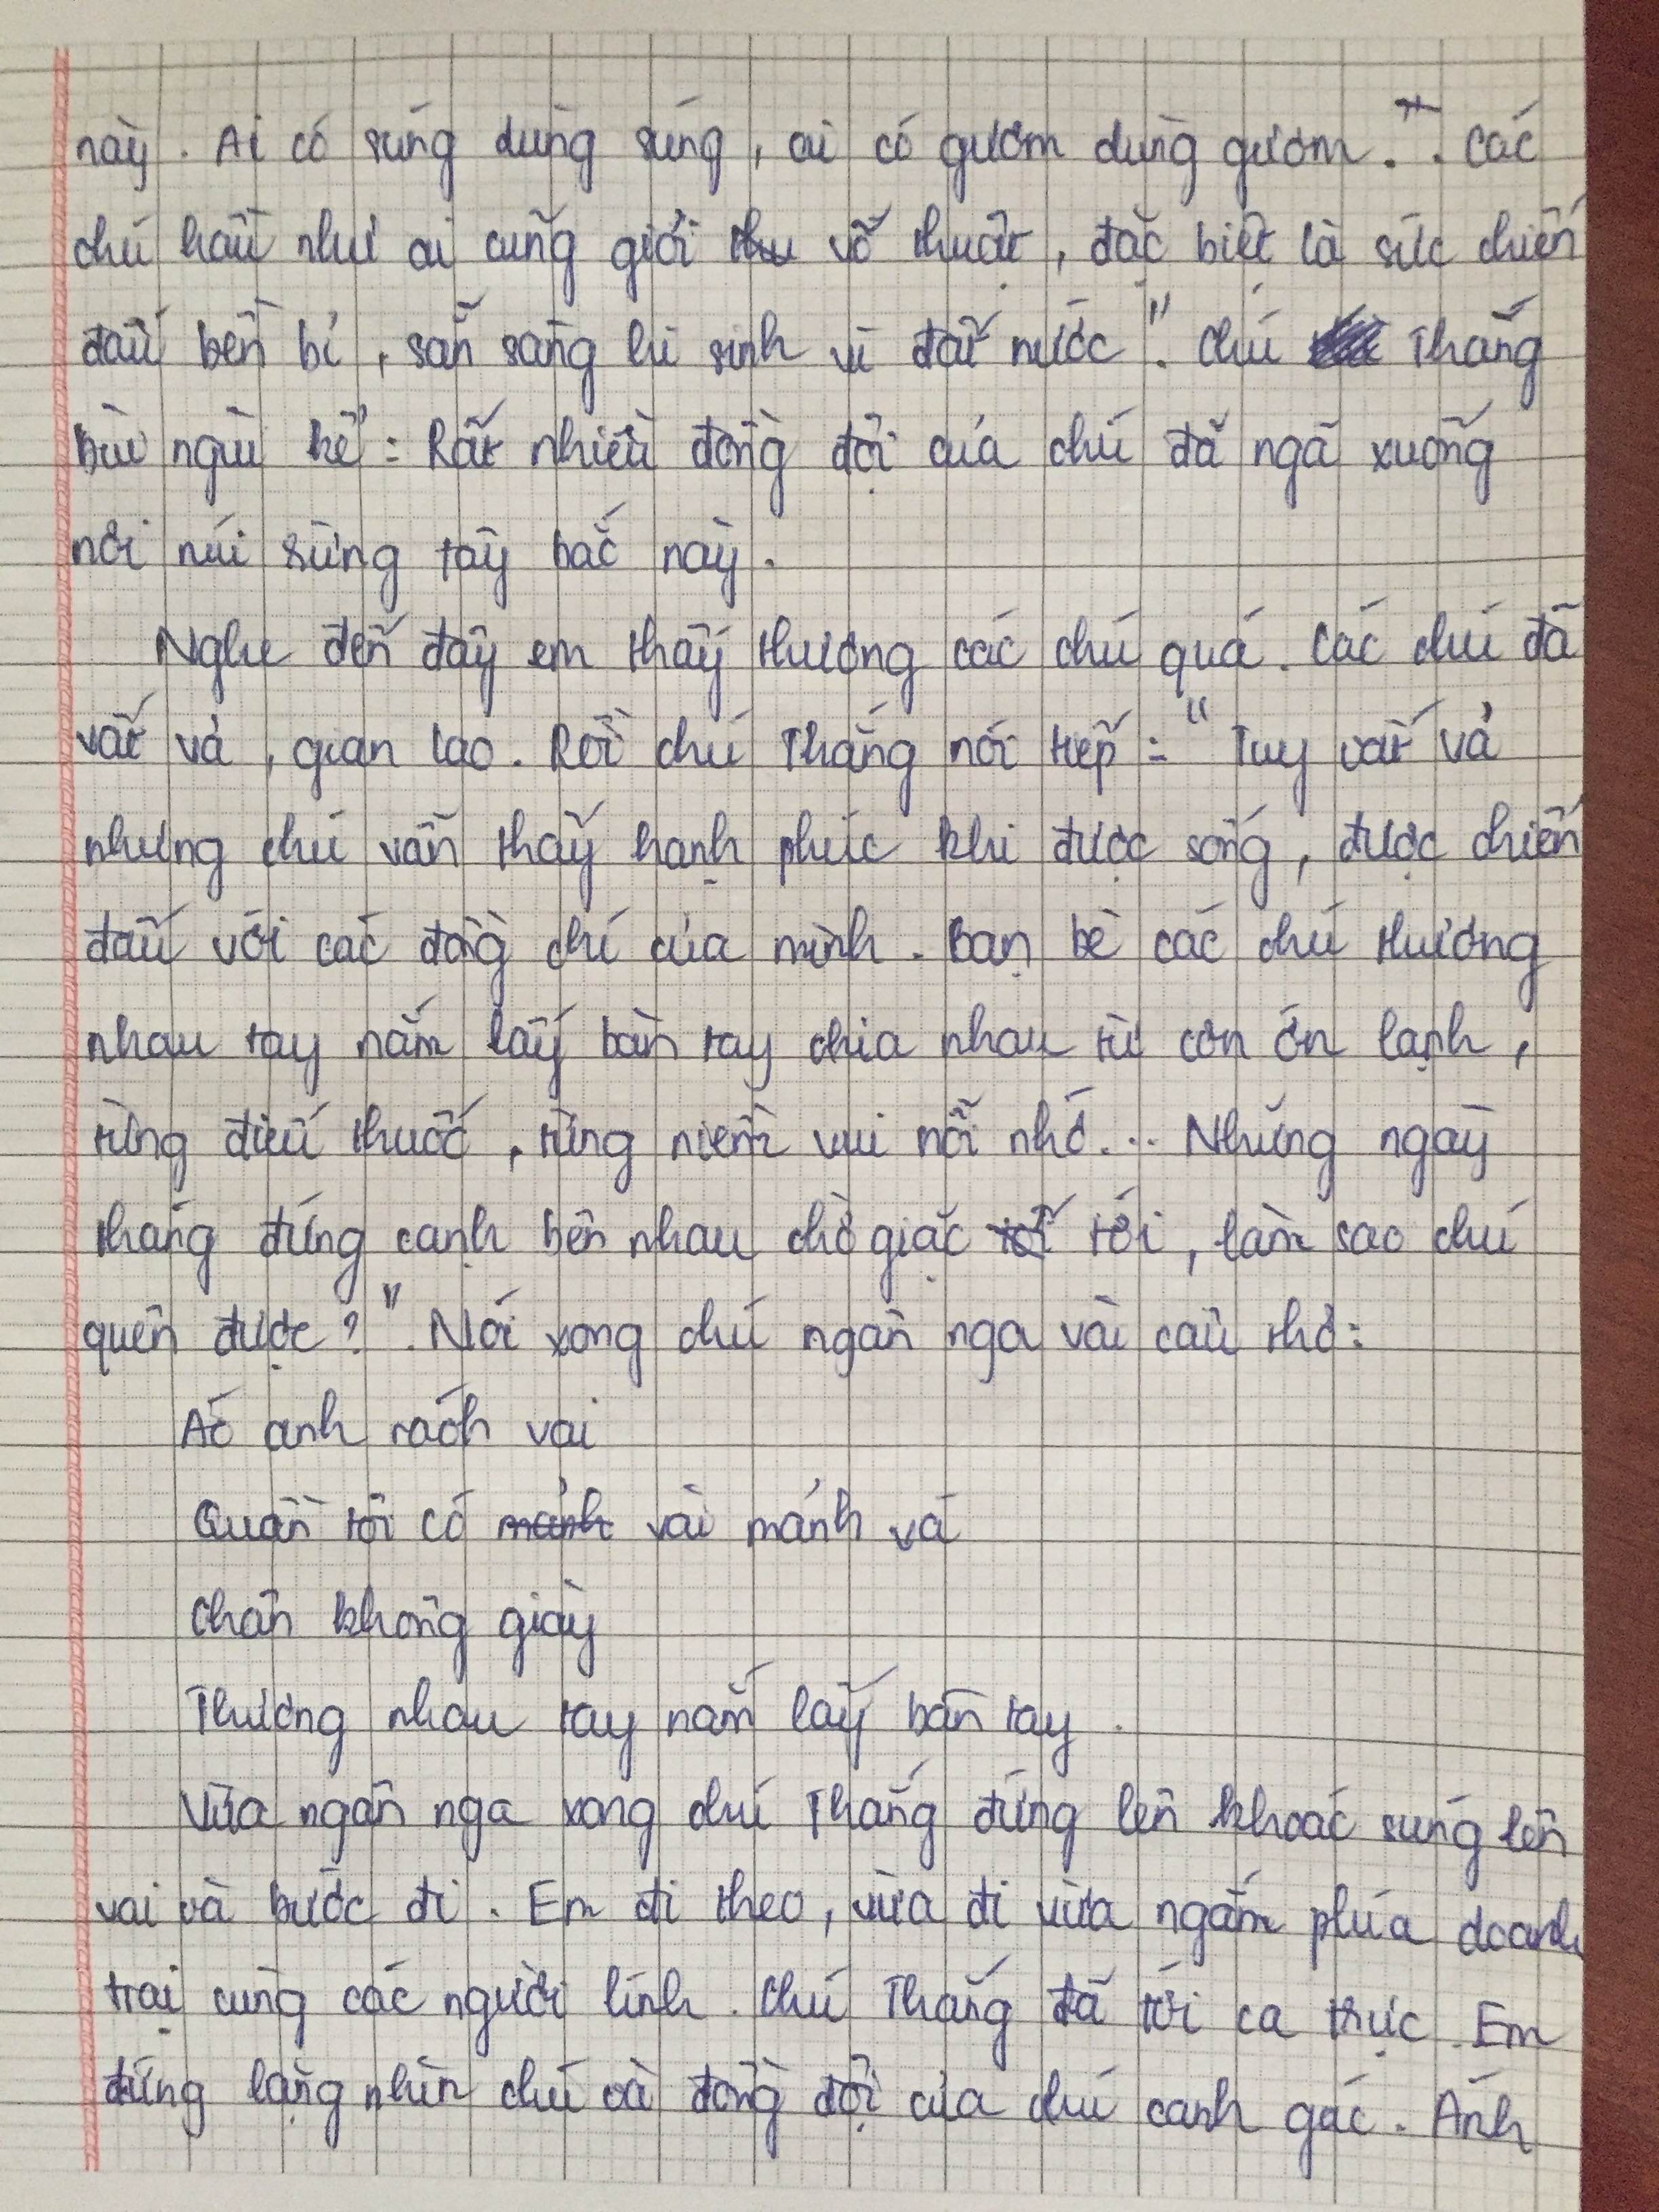 này. Ai có súng dùng súng, ai có gươm dùng gươm.". Các
chú hầu như ai cũng giỏi võ thuật, đặc biệt là sức chiến
đấu bền bỉ, sẵn sàng hi sinh vì đất nước". Chú Thắng
bùi ngùi kể: Rất nhiều đồng đội của chú đã ngã xuống
nơi núi rừng tây bắc này.
Nghe đến đây em thấy thương các chú quá. Các chú đã
vất vả, gian lao. Rồi chú Thắng nói tiếp: "Tuy vất vả
nhưng chú vẫn thấy hạnh phúc khi được sống, được chiến
đấu với các đồng chí của mình. Bạn bè các chú thương
nhau tay nắm lấy bàn tay chia nhau từ cơn ớn lạnh,
từng điếu thuốc, từng niềm vui nỗi nhớ... Những ngày
tháng đứng cạnh bên nhau chờ giặc tới, làm sao chú
quên được?". Nói xong chú ngân nga vài câu thơ:
Áo anh rách vai
Quần tôi có vài mảnh vá
Chân không giày
Thương nhau tay nắm lấy bàn tay.
Vừa ngân nga xong chú Thắng đứng lên khoác súng lên
vai và bước đi. Em đi theo, vừa đi vừa ngắm phía doanh
trại cùng các người lính. Chú Thắng đã tới ca trực. Em
đứng lặng nhìn chú và đồng đội của chú canh gác. Ánh